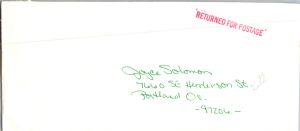 "RETURNED FOR POSTAGE"
Joyce Solomon
7660 SE Henderson St.
Portland Or.
-97206-